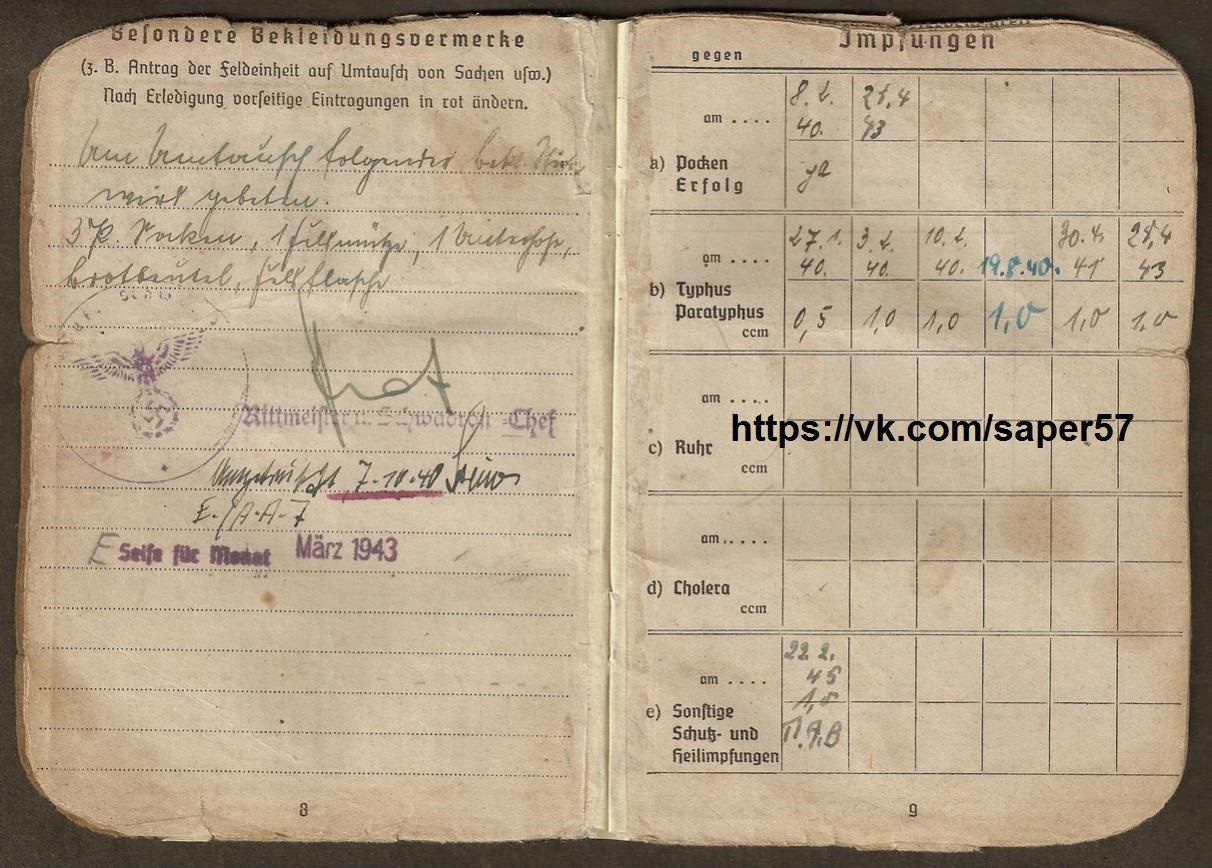 Besondere Bekleidungsvermerke
(z. B. Antrag der Feldeinheit auf Umtausch von Sachen usw.)
Nach Erledigung vorseitige Eintragungen in rot ändern.
Um Umtausch folgender Bekl. Stücke
wird gebeten.
3 P. Socken, 1 Feldmütze, 1 Unterhose,
Brotbeutel, Feldflasche
Rittmeister u. Schwadron-Chef
Umgetauscht 7-10-40
E./A-A-7
E Seife für Monat März 1943
8
Impfungen
gegen
am . . . . 8. 2. 40. 25.4 43
a) Pocken
Erfolg ja
am . . . . 27. 1. 40. 3. 2. 40. 10. 2. 40. 19.8.40. 30. 4. 41 25.4 43
b) Typhus
Paratyphus
ccm 0,5 1,0 1,0 1,0 1,0 1,0
am . . . .
https://vk.com/saper57
c) Ruhr
ccm
am . . . .
d) Cholera
ccm
am . . . . 22. 2. 45
1,0
e) Sonstige
Schutz- und
Heilimpfungen
9